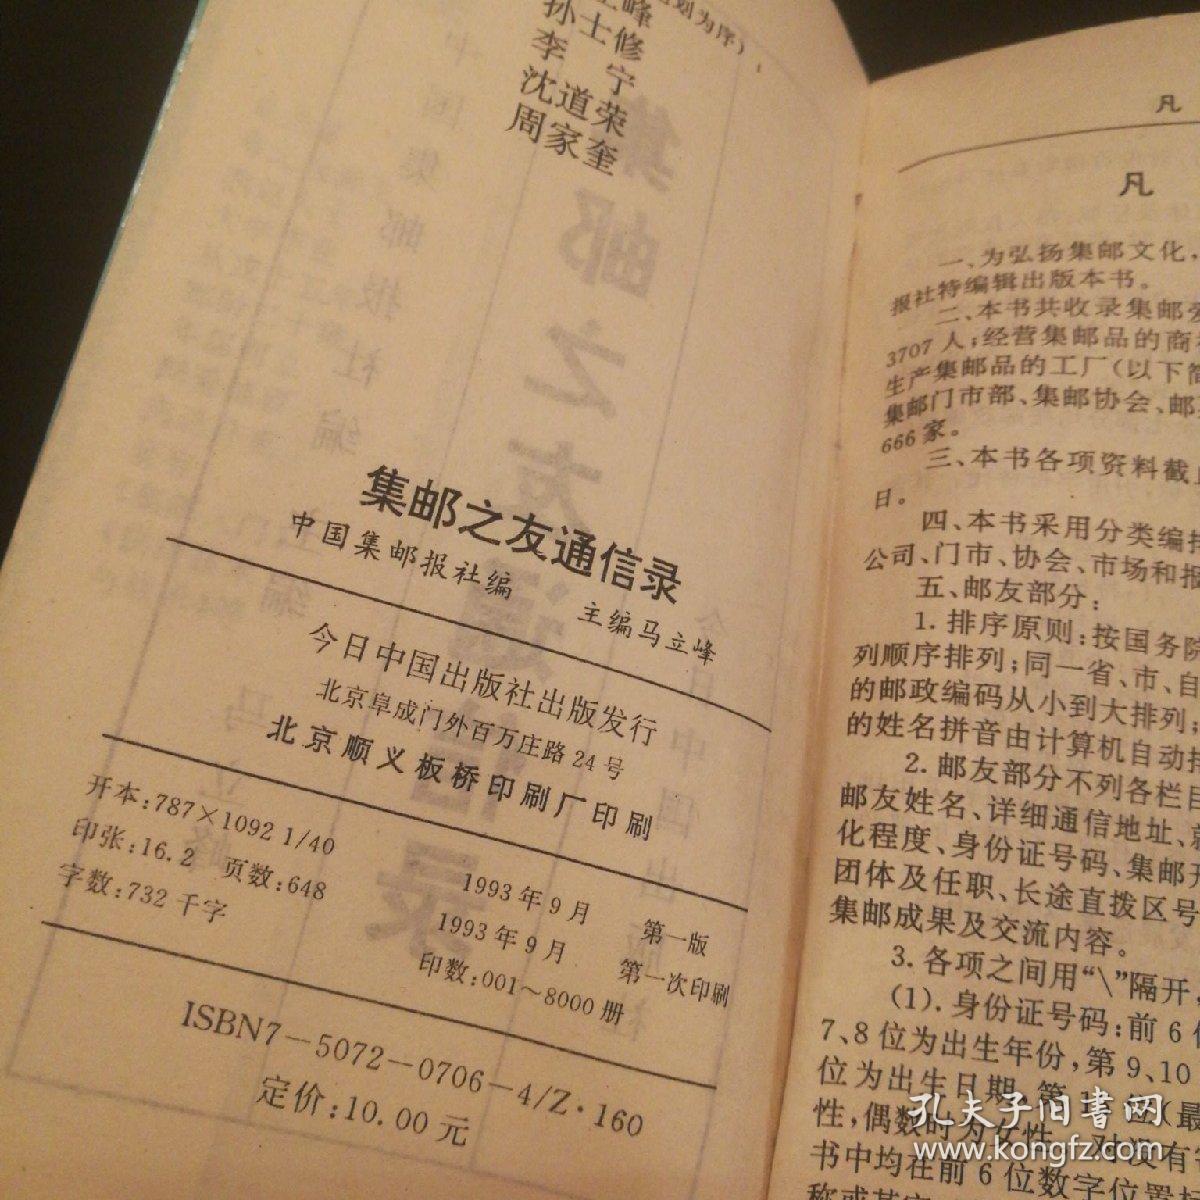 划为序)
峰
孙士修
李 宁
沈道荣
周家奎
集邮之友通信录
中国集邮报社编 主编马立峰
今日中国出版社出版发行
北京阜成门外百万庄路24号
北京顺义板桥印刷厂印刷
开本:787×1092 1/40
印张:16.2 页数:648
字数:732千字
1993年9月 第一版
1993年9月 第一次印刷
印数:001~8000册
ISBN7-5072-0706-4/Z·160
定价:10.00元
凡
凡
一、为弘扬集邮文化,
报社特编辑出版本书。
二、本书共收录集邮爱
3707人;经营集邮品的商
生产集邮品的工厂(以下简
集邮门市部、集邮协会、邮
666家。
三、本书各项资料截
日。
四、本书采用分类编排
公司、门市、协会、市场和报
五、邮友部分:
1.排序原则:按国务院
列顺序排列;同一省、市、自
的邮政编码从小到大排列;
的姓名拼音由计算机自动排
2.邮友部分不列各栏目
邮友姓名、详细通信地址、
化程度、身份证号码、集邮
团体及任职、长途直拨区号
集邮成果及交流内容。
3.各项之间用“\”隔开,
(1).身份证号码:前6位
7、8位为出生年份,第9、10
位为出生日期,第15位(最
性,偶数时为女性。对没有
书中均在前6位数字位置
称或其
孔夫子旧书网
www.kongfz.com